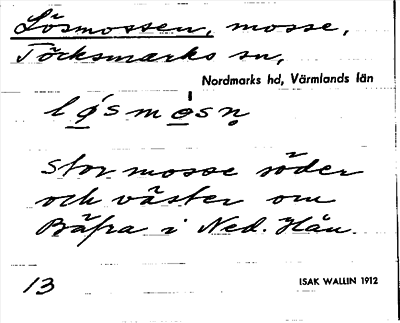 Lösmossen, mosse,
Töcksmarks sn,
Nordmarks hd, Värmlands län
l ǿ s m o s n̥
stor mosse söder
och väster om
Bäfra i Ned. Hän.
13
ISAK WALLIN 1912